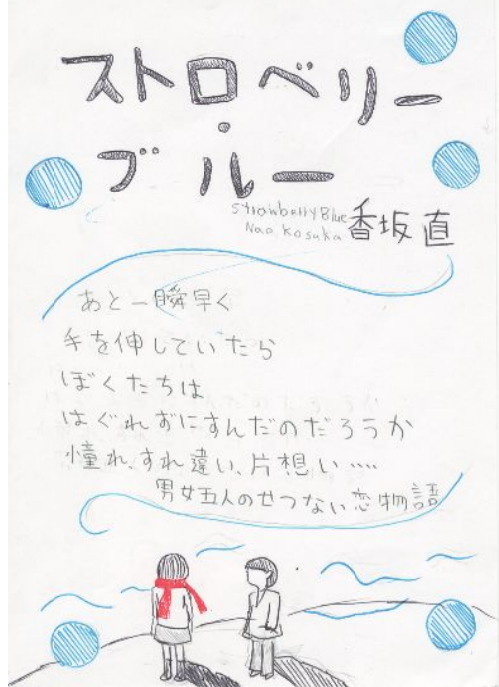 ストロベリー
・
ブルー
Strawberry Blue
Nao Kosuka
香坂 直
あと一瞬早く
手を伸していたら
ぼくたちは
はぐれずにすんだのだろうか
憧れ、すれ違い、片想い‥‥
男女五人のせつない恋物語